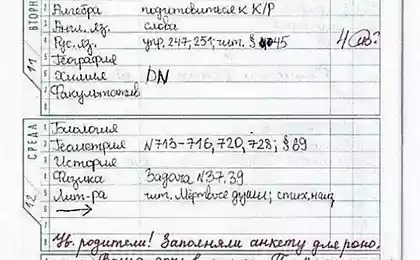 ВТОРН
11
Алгебра подготовиться к К/Р
Англ. яз. слова
Рус. яз. упр. 247, 251; чит. § 45
География
Химия DN
Факультатив
СРЕДА
12
Биология
Геометрия N713-716, 720, 728; § 89
История
Физика Задача N37, 39
Лит-ра чит. Мёртвые души; стих. наиз
Ув. родители! Заполняли анкету для роно.